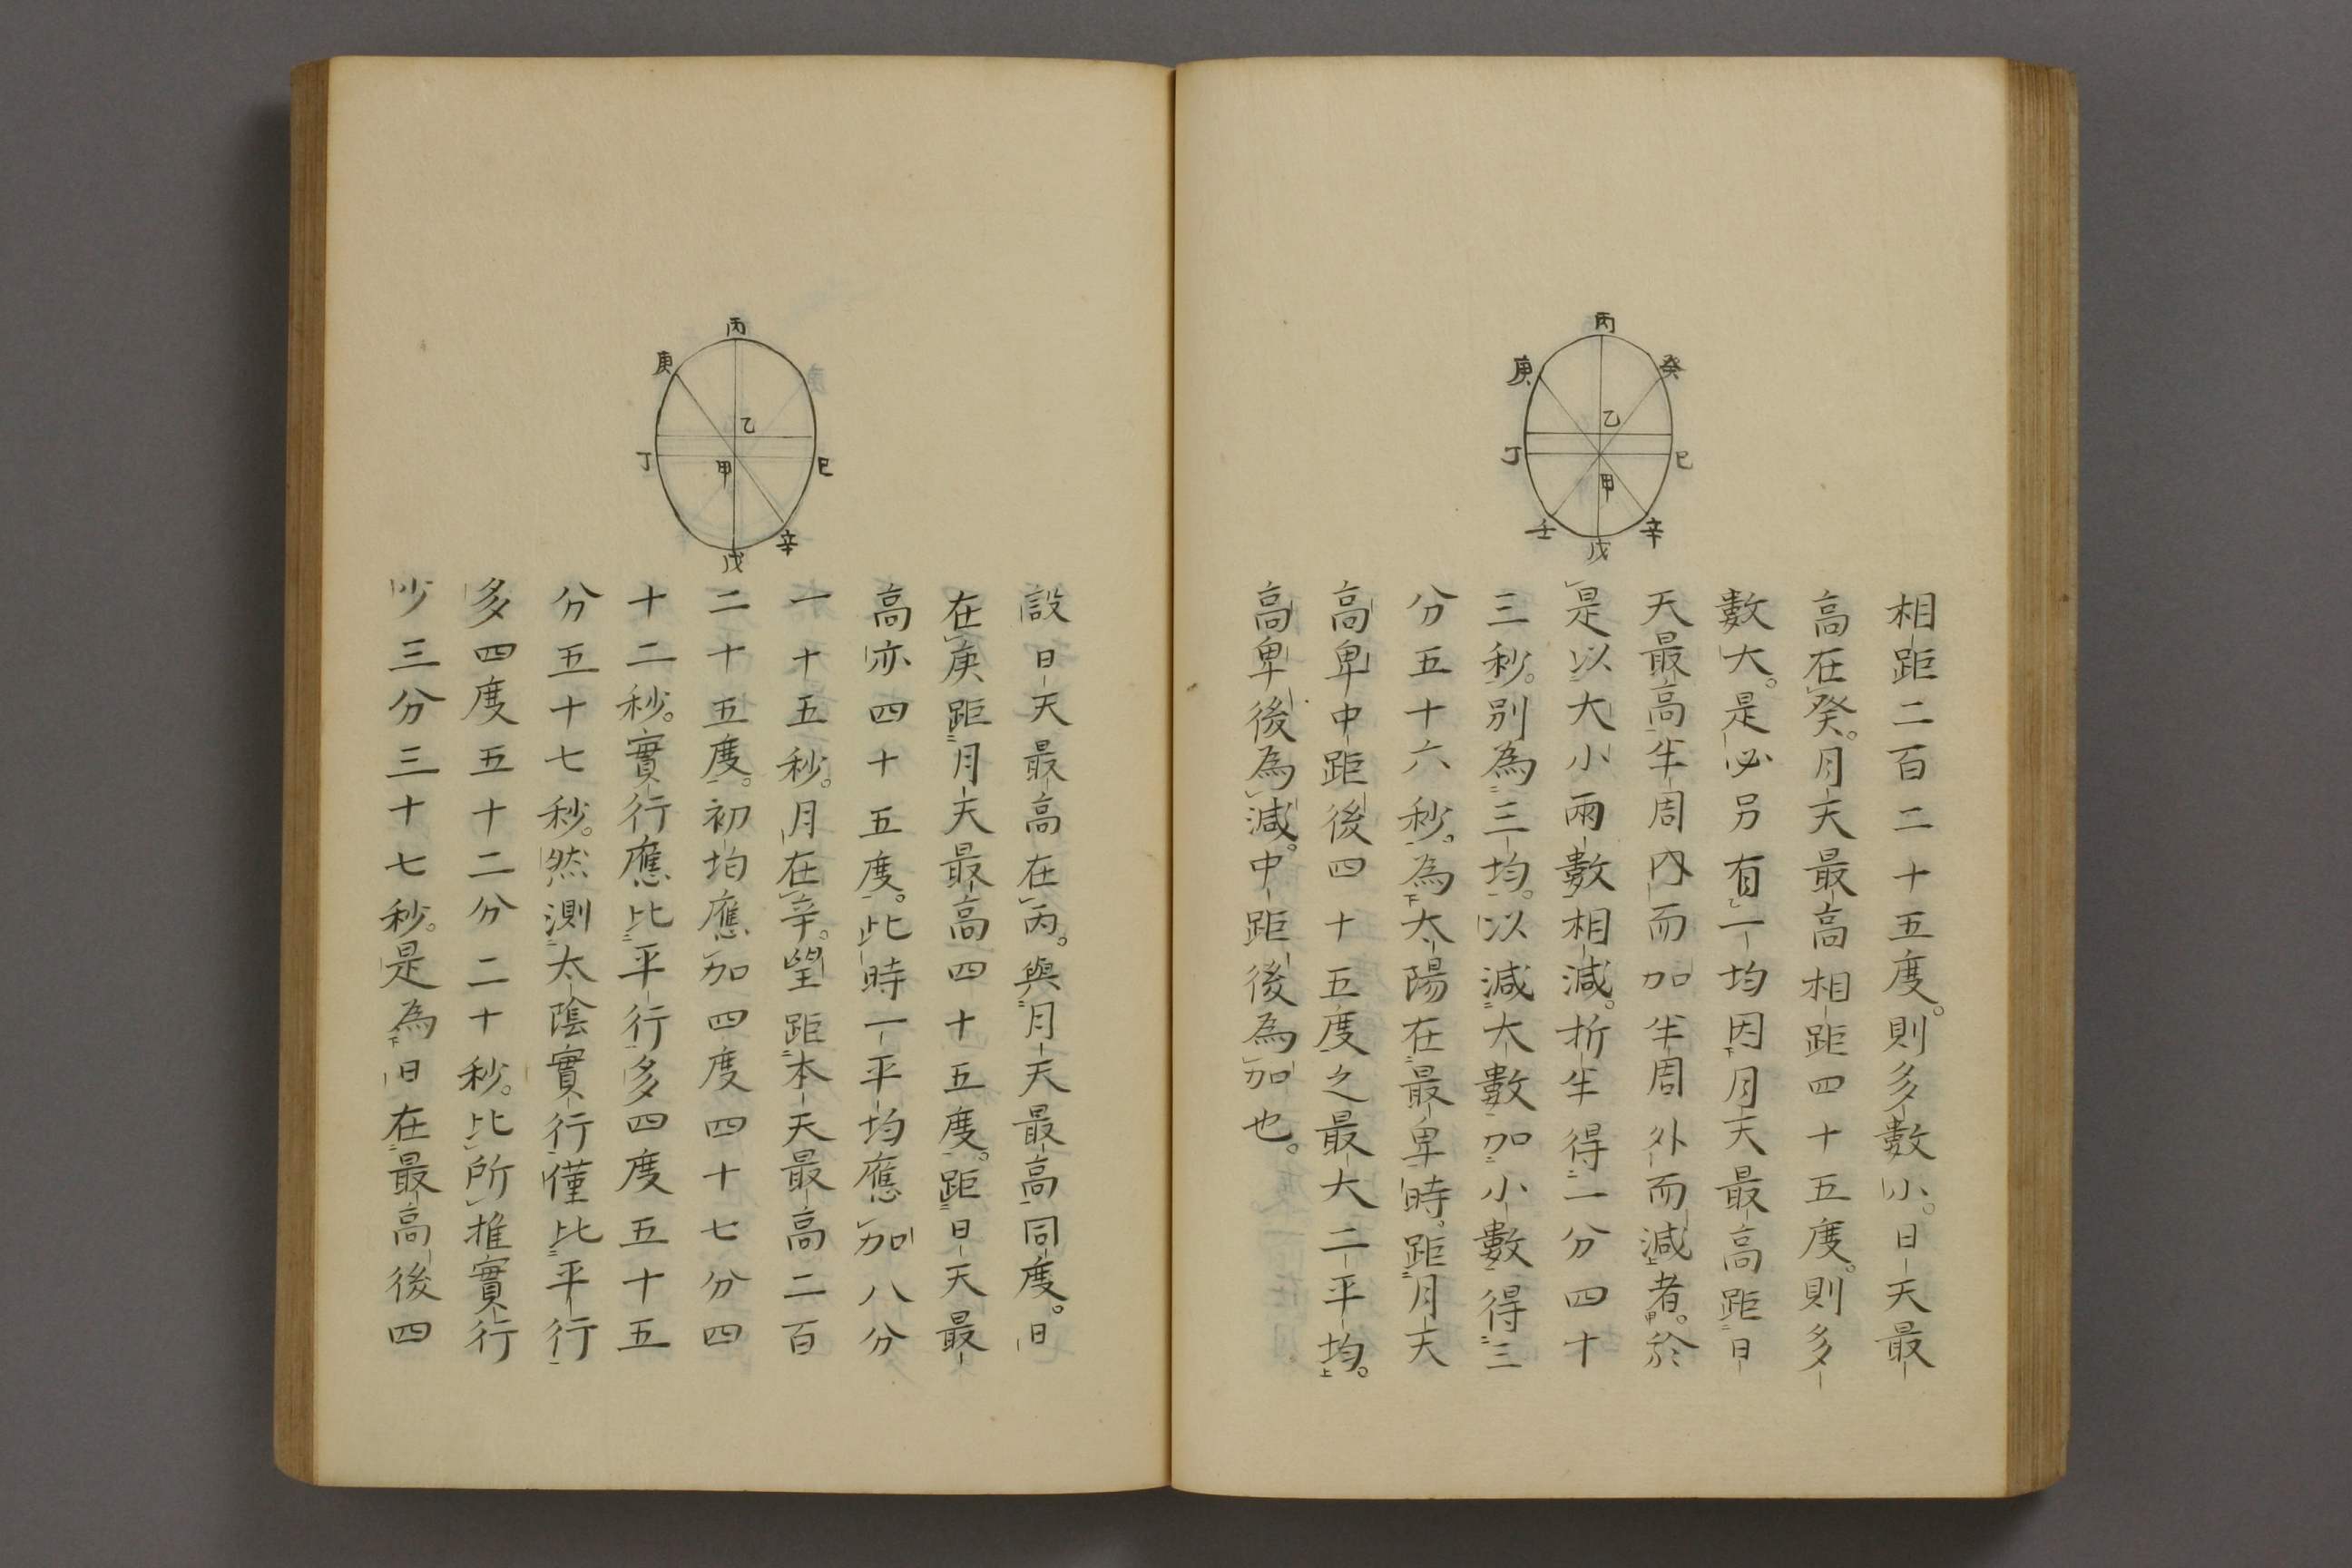 丙
癸
庚
乙
丁
巳
甲
壬
辛
戊
相距二百二十五度。則多數小。日天最
高在癸。月天最高相距四十五度。則多
數大。是必另有一均因月天最高距日
天最高半周內而加半周外而減者。於
是以大小兩數相減。折半得一分四十
三秒。別為三均。以減大數加小數得三
分五十六秒。為太陽在最卑時。距月天
高卑中距後四十五度之最大二平均。
高卑後為減。中距後為加也。
丙
庚
乙
丁
甲
巳
辛
戊
設日天最高在丙。與月天最高同度。日
在庚距月天最高四十五度。距日天最
高亦四十五度。此時一平均應加八分
一十五秒。月在辛。望距本天最高二百
二十五度。初均應加四度四十七分四
十二秒。實行應比平行多四度五十五
分五十七秒。然測太陰實行僅比平行
多四度五十二分二十秒。比所推實行
少三分三十七秒。是為日在最高後四